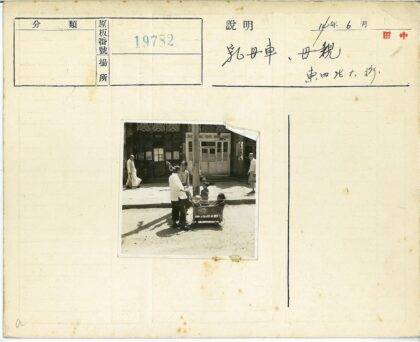 分類
原板番號
19782
場所
說明
14年6月
田中
乳母車、母親
東四北大街
a